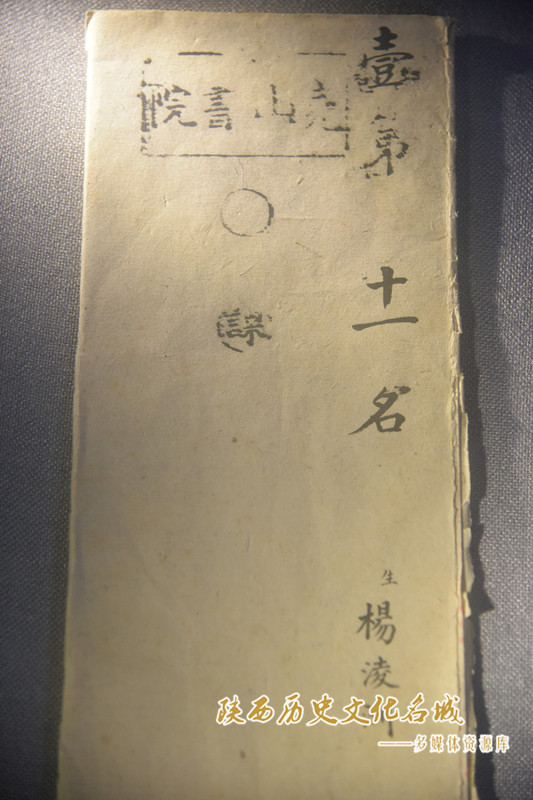 壹第
十一名
生楊淩
堯山書院
課
陕西历史文化名城
——多媒体资源库